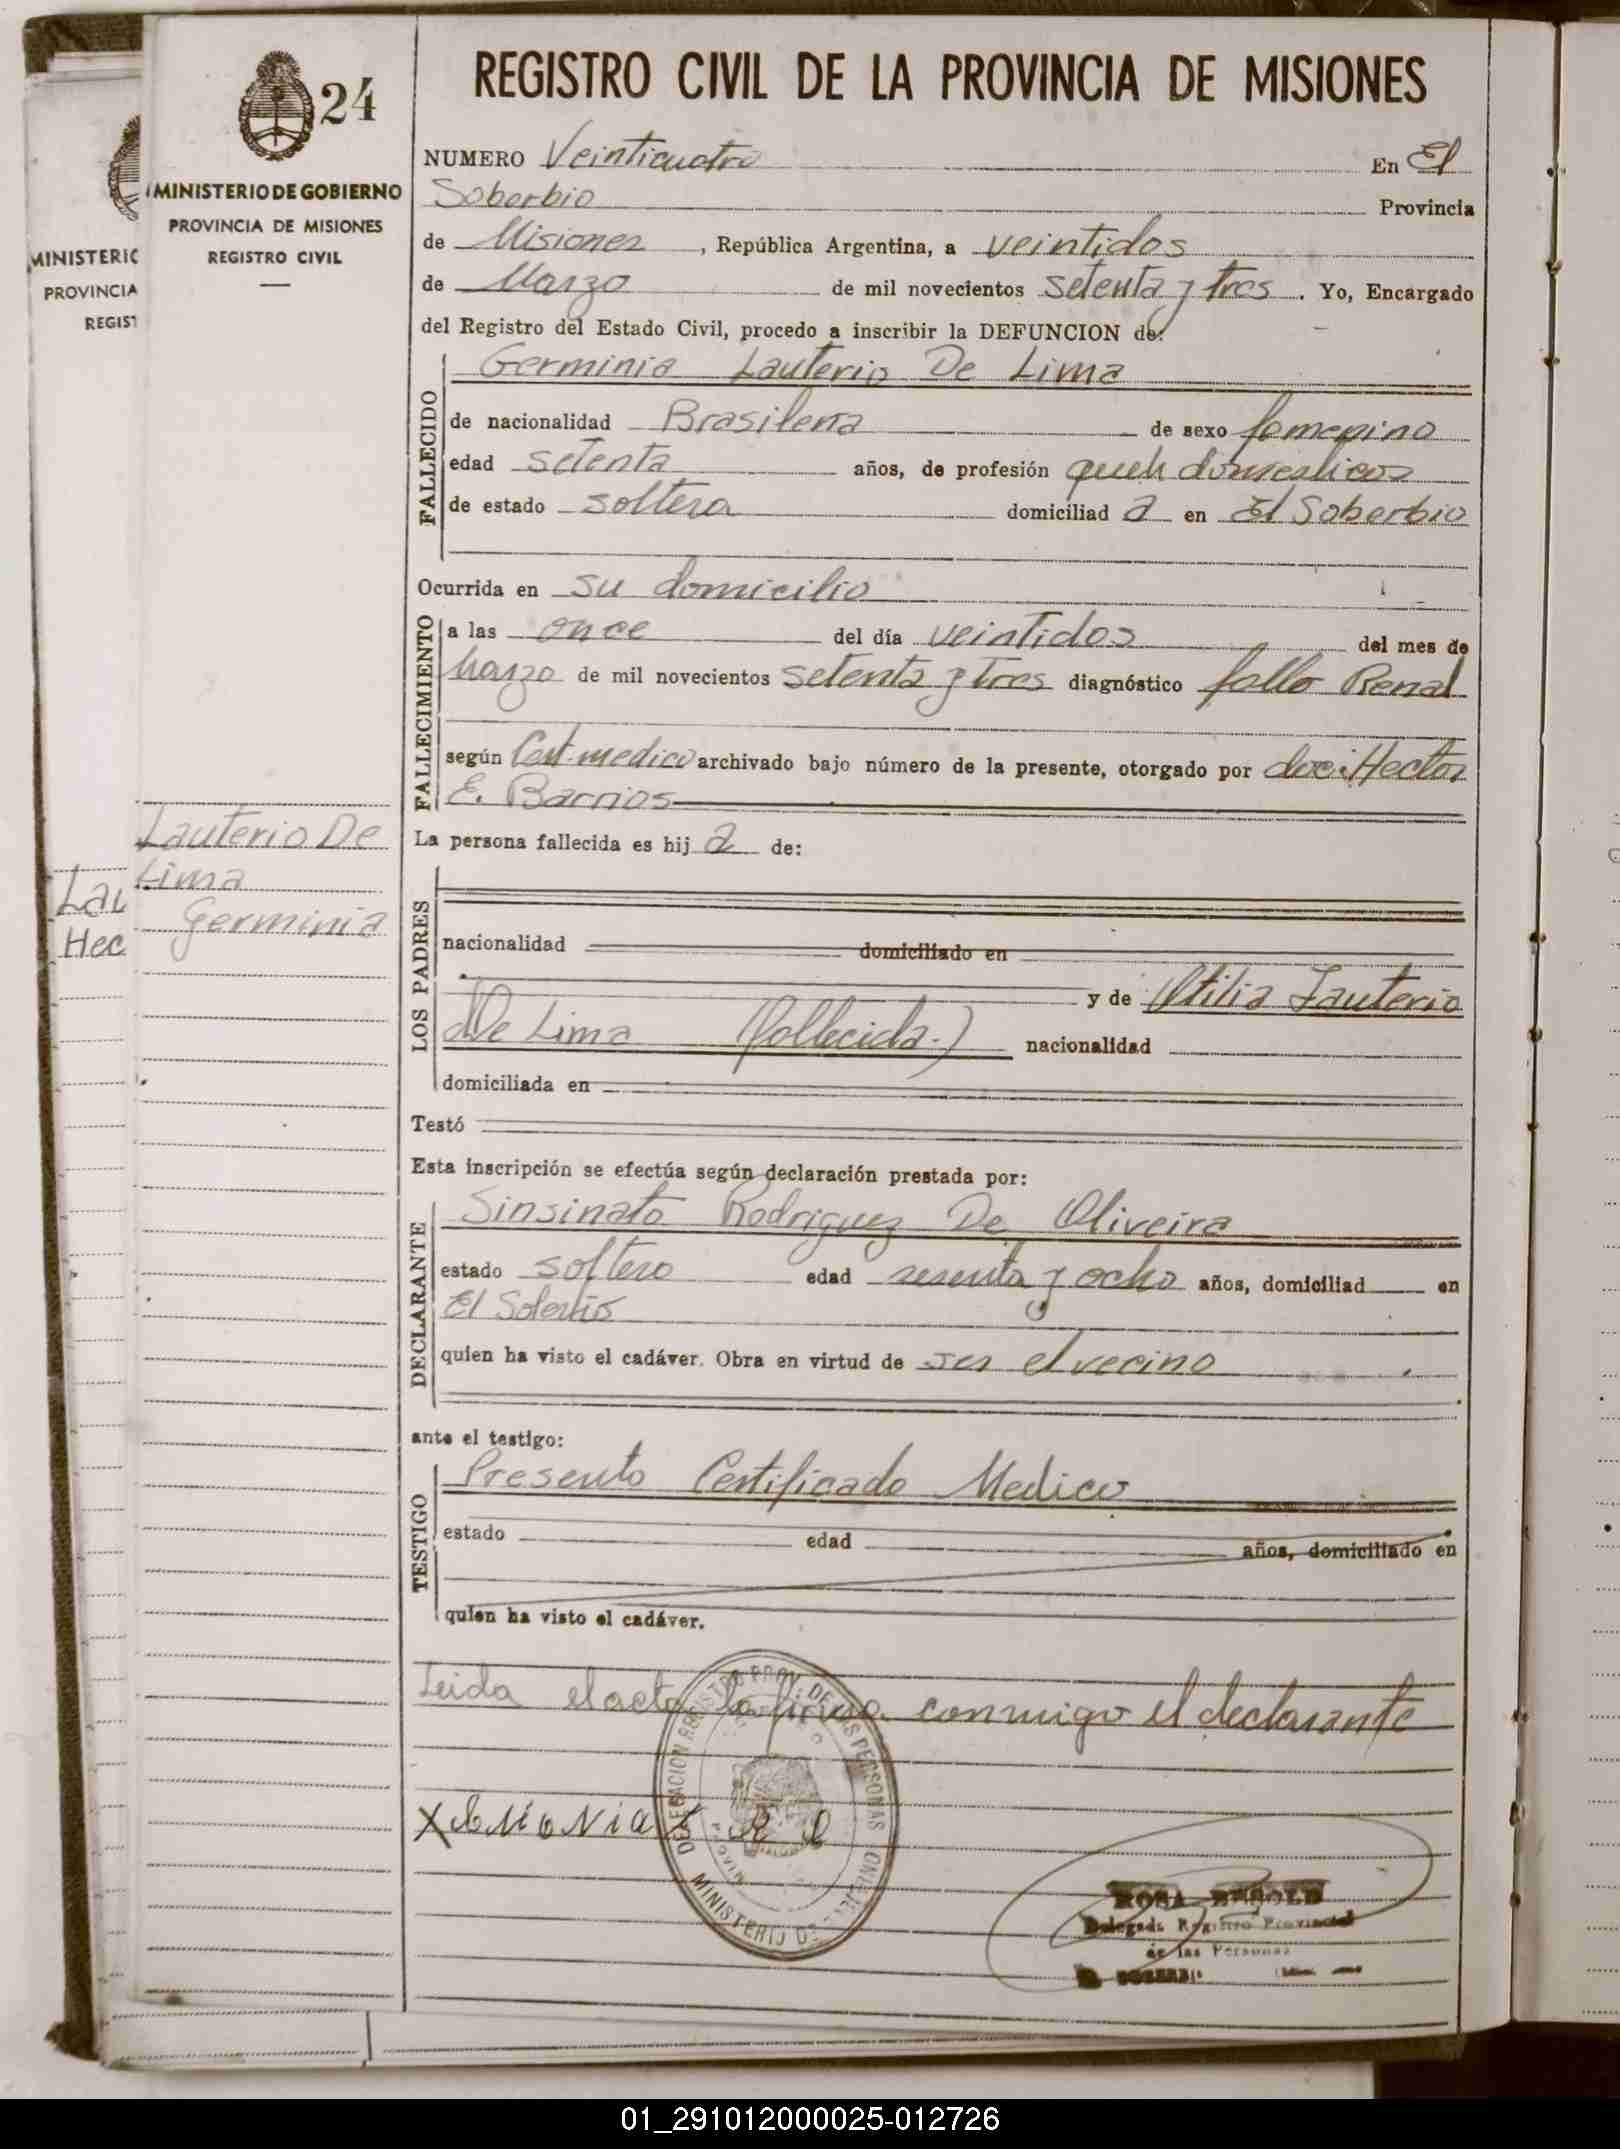 24
MINISTERIO DE GOBIERNO
PROVINCIA DE MISIONES
REGISTRO CIVIL
MINISTERIO
PROVINCIA
REGIST
Lau
Hec
Lauterio De
Lima
Germinia
REGISTRO CIVIL DE LA PROVINCIA DE MISIONES
NUMERO Veinticuatro En El
Soberbio Provincia
de Misiones, República Argentina, a veintidos
de Marzo de mil novecientos setenta y tres. Yo, Encargado
del Registro del Estado Civil, procedo a inscribir la DEFUNCION de:
FALLECIDO
Germinia Lauterio De Lima
de nacionalidad Brasileña de sexo femenino
edad setenta años, de profesión queh domesticos
de estado soltera domiciliad a en El Soberbio
Ocurrida en su domicilio
FALLECIMIENTO
a las once del día veintidos del mes de
Marzo de mil novecientos setenta y Tres diagnóstico fallo Renal
según Cert. medico archivado bajo número de la presente, otorgado por doc: Hector
E. Barrios
La persona fallecida es hij a de:
LOS PADRES
nacionalidad domiciliado en
y de Otilia Lauterio
De Lima (fallecida.) nacionalidad
domiciliada en
Testó
Esta inscripción se efectúa según declaración prestada por:
DECLARANTE
Sinsinato Rodriguez De Oliveira
estado soltero edad sesenta y ocho años, domiciliad en
El Soberbio
quien ha visto el cadáver. Obra en virtud de ser el vecino
ante el testigo:
TESTIGO
Presento Certificado Medico
estado edad años, domiciliado en
quien ha visto el cadáver.
Leida el acta la firma conmigo el declarante
DELEGACION REGISTRO PROV. DE LAS PERSONAS
MINISTERIO DE
ROSA
Delegada Registro Provincial
de las Personas
01_291012000025-012726